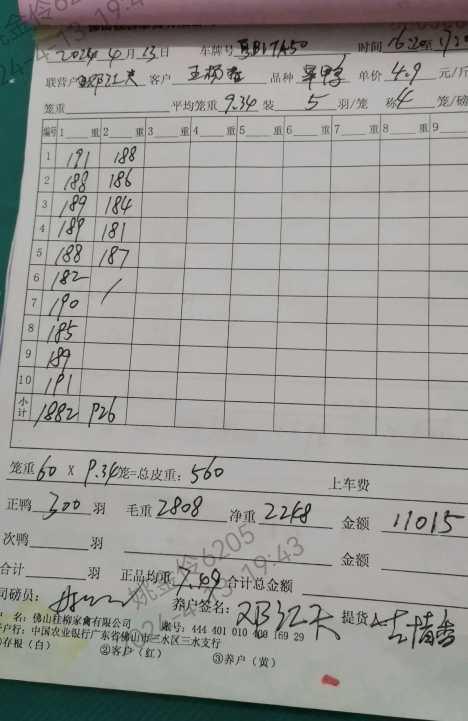 2024年4月13日 车牌号 时间 16:20至
联营户 邓江天 客户 品种 单价 4.9 元/斤
笼重 平均笼重 9.34 装 5 羽/笼 称 4 笼/磅
编号 1 重 2 重 3 重 4 重 5 重 6 重 7 重 8 重 9
1 191 188
2 188 186
3 189 184
4 189 181
5 188 187
6 182 /
7 190
8 185
9 189
10 191
小计 1882 926
笼重 60 X 9.34 笼=总皮重: 560
上车费
正鸭 300 羽 毛重 2808 净重 2248 金额 11015
次鸭 羽 金额
合计 羽 正品均重 7.49 合计总金额
司磅员: 养户签名: 邓江天 提货
名: 佛山桂柳家禽有限公司 账号: 444 401 010 400 169 29
户行: 中国农业银行广东省佛山市三水区三水支行
①存根(白) ②客户(红) ③养户(黄)
姚金伶6205
2024-4-13-19:43